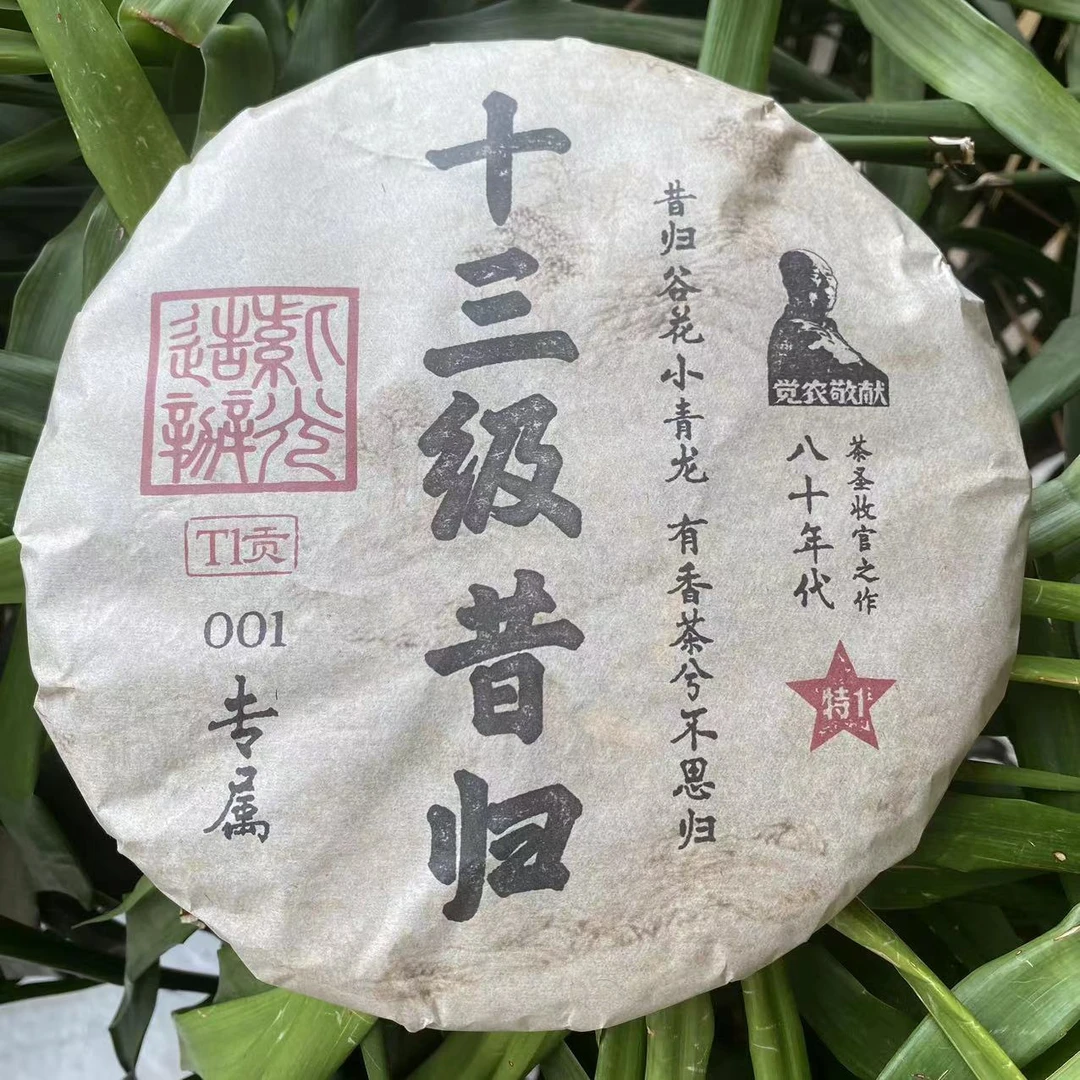 觉农敬献
茶圣收官之作
八十年代
昔归谷花小青龙 有香茶兮不思归
十三级昔归
紫光
造辦
T1贡
001
专属